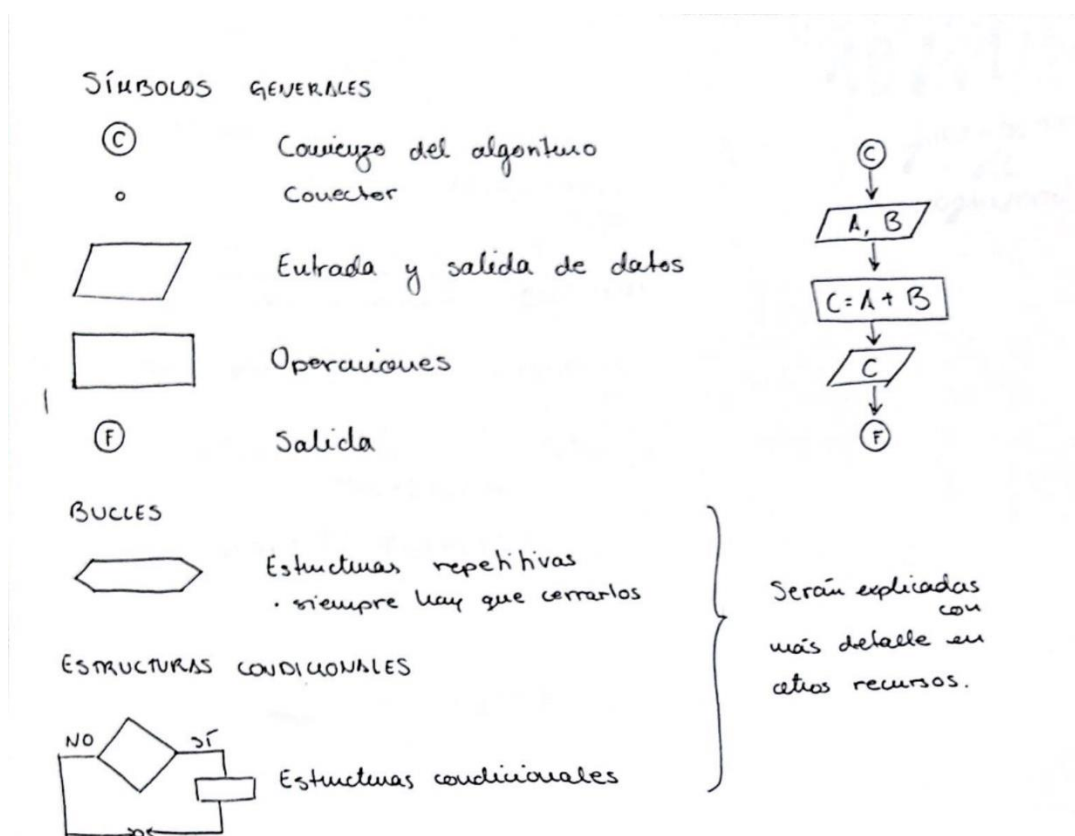 SÍMBOLOS GENERALES
C Comienzo del algoritmo
Conector
Entrada y salida de datos
Operaciones
F Salida
C
A, B
C = A + B
C
F
BUCLES
Estructuras repetitivas
· siempre hay que cerrarlos
ESTRUCTURAS CONDICIONALES
NO SÍ
Estructuras condicionales
Serán explicadas
con
más detalle en
otros recursos.